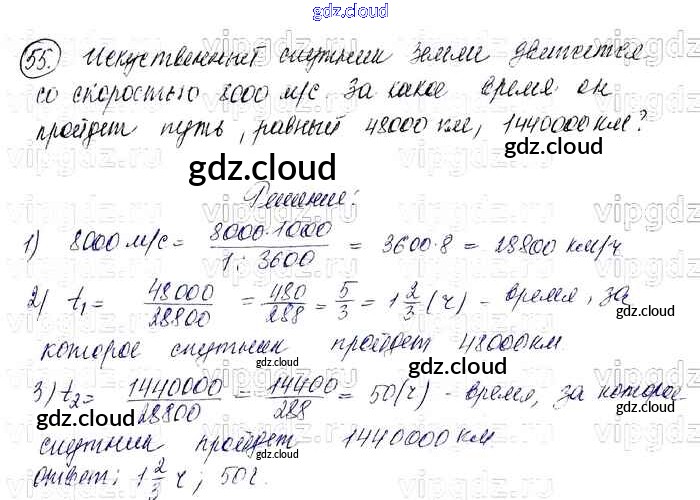 gdz.cloud
55. Искуственный спутник Земли движется
со скоростью 8000 м/с. За какое время он
пройдет путь, равный 48000 км, 1440000 км?
gdz.cloud
Решение:
1) 8000 м/с = 8000·1000 / 1:3600 = 3600·8 = 28800 км/ч
gdz.cloud
2) t₁ = 48000/28800 = 480/288 = 5/3 = 1 2/3 (ч) - время, за
gdz.cloud
которое спутник пройдет 48000 км
gdz.cloud
3) t₂ = 1440000/28800 = 14400/288 = 50 (ч) - время, за которое
gdz.cloud
спутник пройдет 1440000 км
gdz.cloud
ответ: 1 2/3 ч; 50ч.